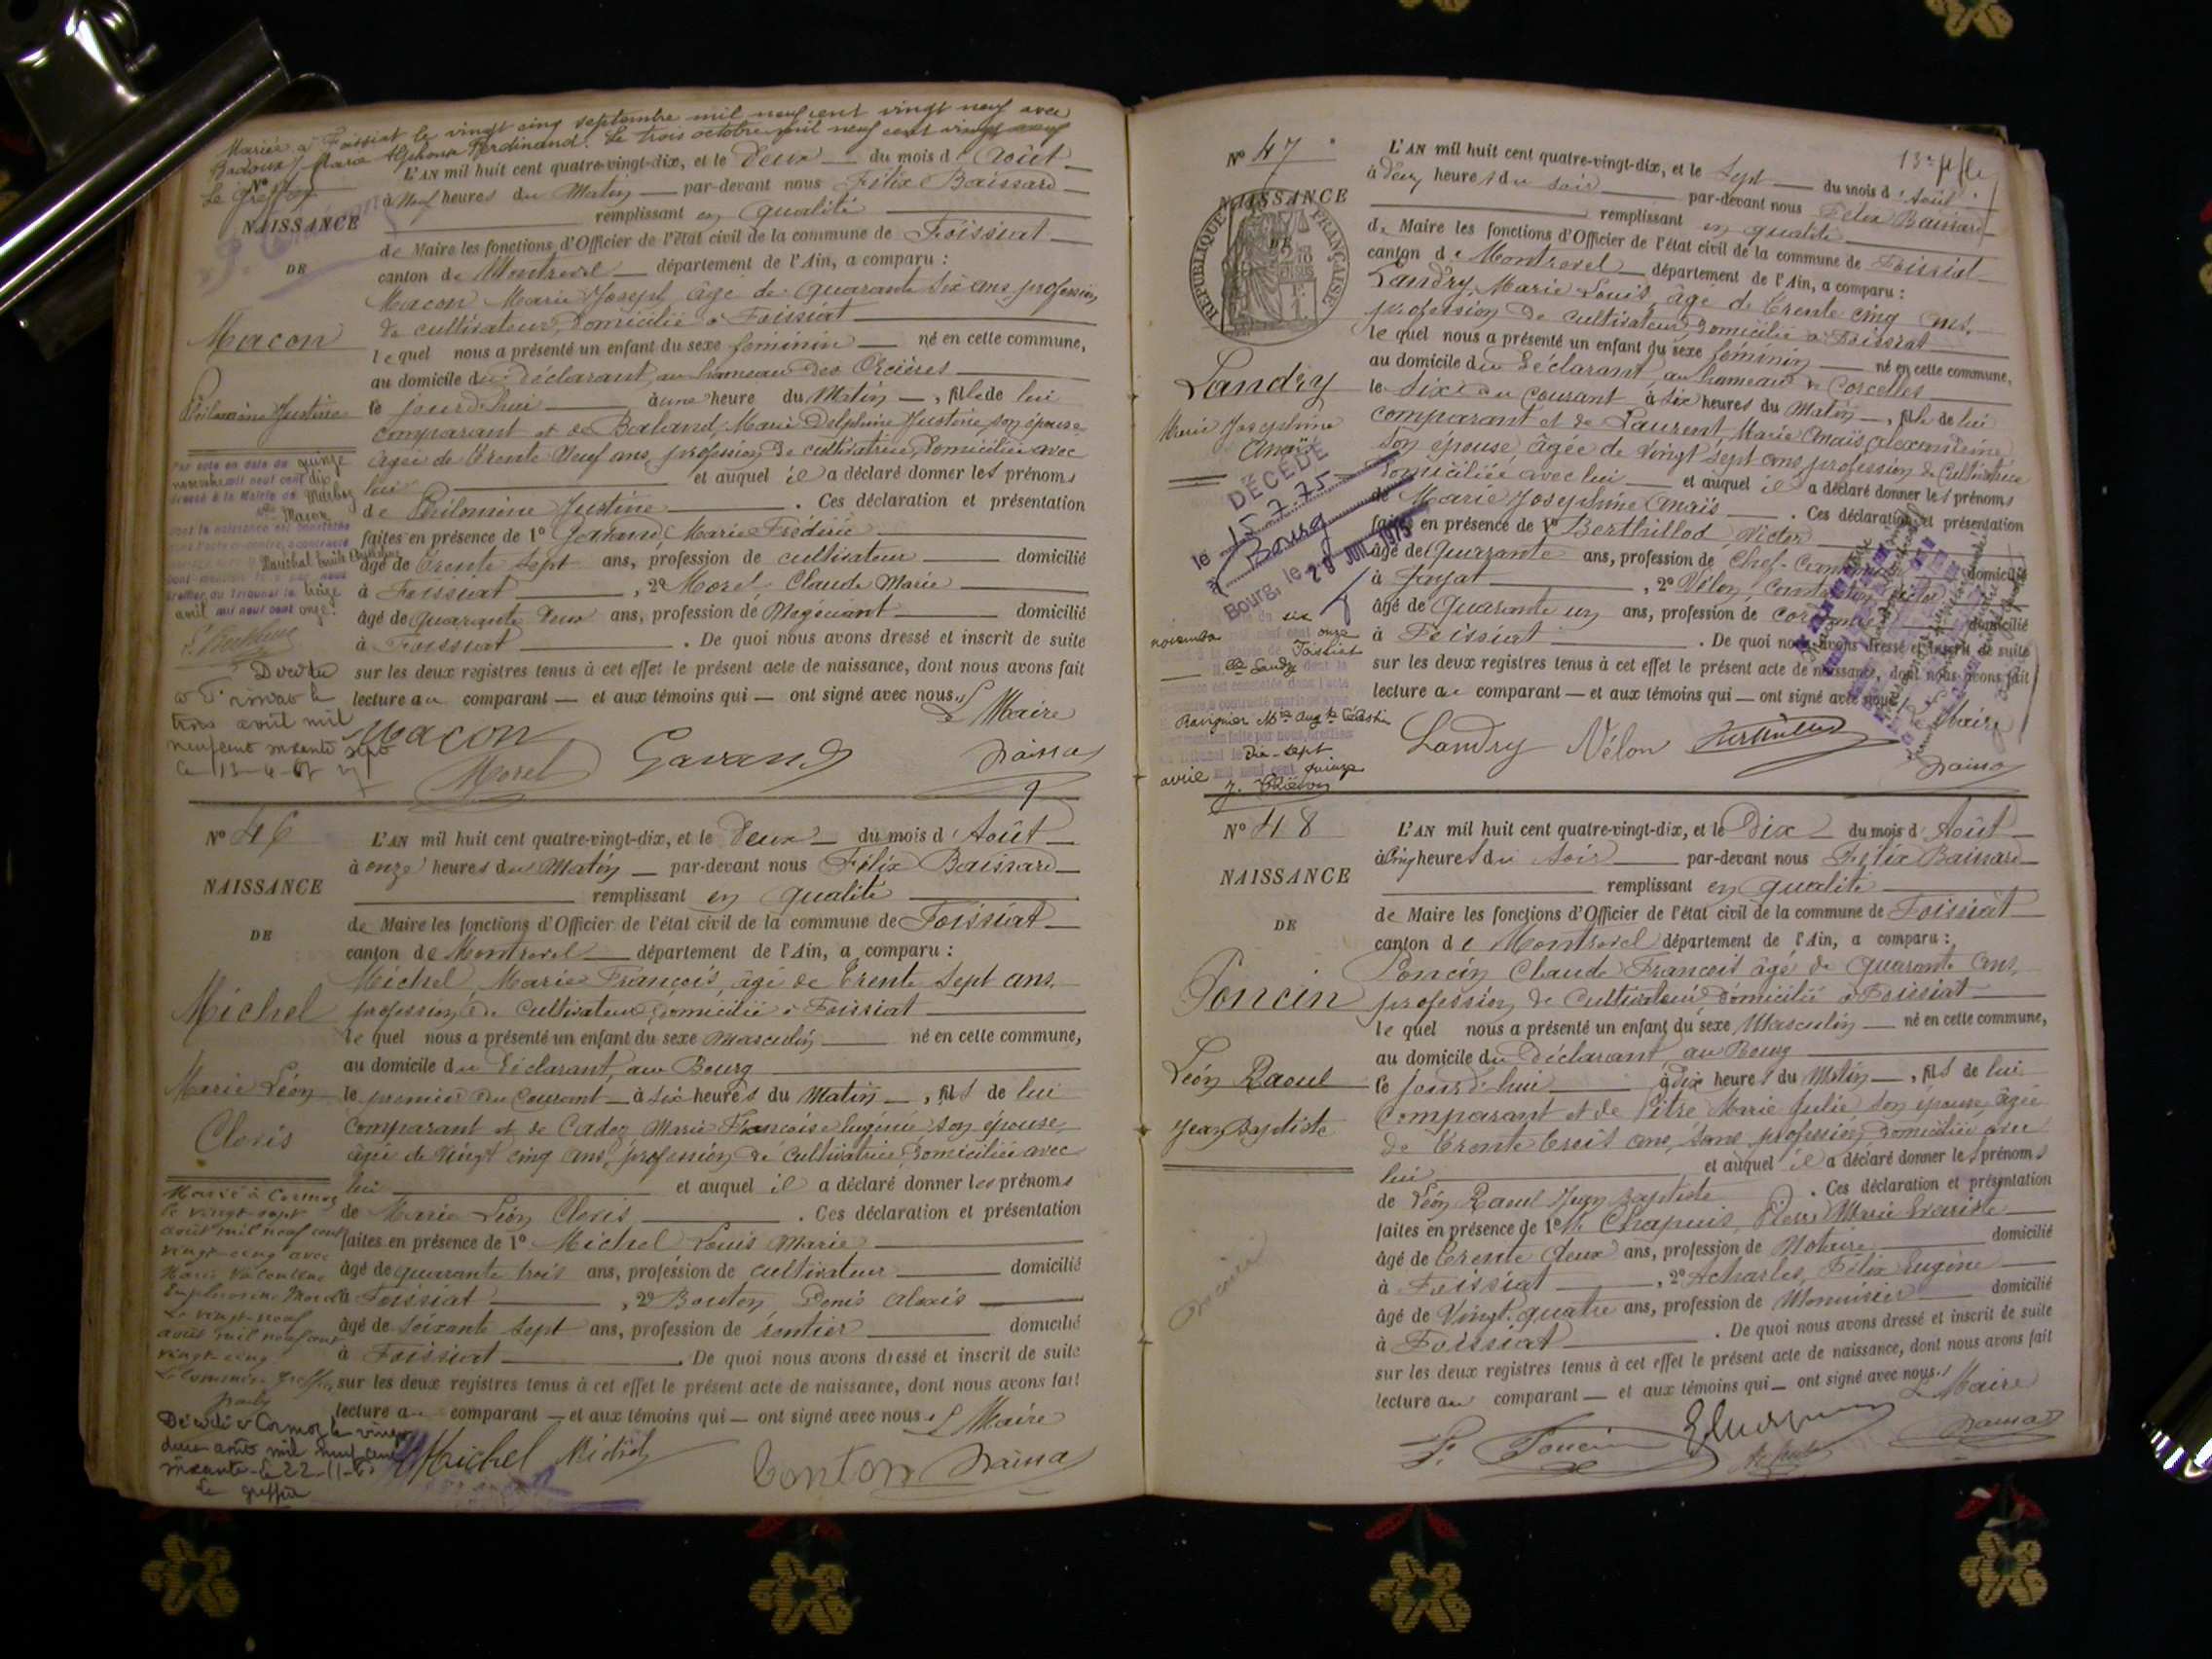 Mariée à Foissiat le vingt cinq septembre mil neuf cent vingt neuf avec
Marie Alphonse Ferdinand. Le trois octobre mil neuf cent vingt neuf
Le Greffier
L'AN mil huit cent quatre-vingt-dix, et le Deux du mois d'Août
NAISSANCE
à Neuf heures du Matin par-devant nous Félix Baissard
remplissant en qualité
DE
de Maire les fonctions d'Officier de l'état civil de la commune de Foissiat
canton de Montrevel département de l'Ain, a comparu :
Macon Marie Joseph, âgé de quarante six ans profession
Macon
de cultivateur, domicilié à Foissiat
lequel nous a présenté un enfant du sexe féminin né en cette commune,
au domicile du déclarant, au hameau des Orcières
Philomène Justine
le jourd'hui à une heure du Matin, fille de lui
comparant et de Baland, Marie Delphine Justine, son épouse
âgée de trente neuf ans, profession de cultivatrice, domiciliée avec
lui et auquel il a déclaré donner les prénoms
de Philomène Justine. Ces déclaration et présentation
faites en présence de 1° Marie Frédéric
âgé de trente sept ans, profession de cultivateur domicilié
à Foissiat, 2° Morel Claude Marie
âgé de quarante deux ans, profession de Négociant domicilié
à Foissiat. De quoi nous avons dressé et inscrit de suite
sur les deux registres tenus à cet effet le présent acte de naissance, dont nous avons fait
lecture au comparant et aux témoins qui ont signé avec nous. Le Maire
Par acte en date du quinze
novembre mil neuf cent dix
dressé à la Mairie de Marboz
Macon
Maréchal
avril mil neuf cent onze
trois avril mil
neuf cent soixante sept
Macon
Morel
Gavand
N° 46
L'AN mil huit cent quatre-vingt-dix, et le Deux du mois d'Août
à onze heures du Matin par-devant nous Félix Baissard
NAISSANCE
remplissant en qualité
DE
de Maire les fonctions d'Officier de l'état civil de la commune de Foissiat
canton de Montrevel département de l'Ain, a comparu :
Michel, Marie François, âgé de trente sept ans,
Michel
profession de cultivateur, domicilié à Foissiat
lequel nous a présenté un enfant du sexe Masculin né en cette commune,
au domicile du Déclarant, au Bourg
Marie Léon
Clovis
le premier du Courant à six heures du Matin, fils de lui
comparant et de Cadoz Marie Françoise Eugénie son épouse,
âgée de vingt cinq ans, profession de cultivatrice, domiciliée avec
lui et auquel il a déclaré donner les prénoms
de Marie Léon Clovis. Ces déclaration et présentation
faites en présence de 1° Michel Louis Marie
âgé de quarante trois ans, profession de cultivateur domicilié
à Foissiat, 2° Bouton, Denis Alexis
âgé de soixante sept ans, profession de rentier domicilié
à Foissiat. De quoi nous avons dressé et inscrit de suite
sur les deux registres tenus à cet effet le présent acte de naissance, dont nous avons fait
lecture au comparant et aux témoins qui ont signé avec nous. Le Maire
Marié à Cormoz
le vingt sept
août mil neuf cent
vingt-cinq avec
Le vingt-neuf
août mil neuf cent
vingt-cinq
Décédé à Cormoz le vingt
deux août mil neuf cent
soixante
Le greffier
Michel Michel
N° 47
13e f/le
L'AN mil huit cent quatre-vingt-dix, et le Sept du mois d'Août
à deux heures du soir par-devant nous Félix Baissard
NAISSANCE
remplissant en qualité
REPUBLIQUE FRANÇAISE
de Maire les fonctions d'Officier de l'état civil de la commune de Foissiat
canton de Montrevel département de l'Ain, a comparu :
Landry, Marie Louis, âgé de trente cinq ans,
profession de cultivateur, domicilié à Foissiat
lequel nous a présenté un enfant du sexe féminin né en cette commune,
Landry
Marie Joséphine
Anaïs
au domicile du Déclarant, au hameau de Corcelles
le Six du courant à six heures du Matin, fille de lui
comparant et de Laurent Marie Anaïs Alexandrine
son épouse, âgée de vingt sept ans, profession de Cultivatrice
domiciliée avec lui et auquel il a déclaré donner les prénoms
de Marie Joséphine Anaïs. Ces déclaration et présentation
faites en présence de 1° Berthillod Victor
âgé de Quarante ans, profession de Chef-Cantonnier domicilié
à Jayat, 2° Vélon,
âgé de quarante un ans, profession de domicilié
à Foissiat. De quoi nous avons dressé et inscrit de suite
sur les deux registres tenus à cet effet le présent acte de naissance, dont nous avons fait
lecture au comparant et aux témoins qui ont signé avec nous. Le Maire
DÉCÉDÉ
le 15 7 75
à Bourg
Bourg, le 28 JUIL 1975
six
novembre
onze
Foissiat
Landry
dix-sept
avril
quinze
Landry Vélon
N° 48
L'AN mil huit cent quatre-vingt-dix, et le Dix du mois d'Août
à Cinq heures du soir par-devant nous Félix Baissard
NAISSANCE
remplissant en qualité
DE
de Maire les fonctions d'Officier de l'état civil de la commune de Foissiat
canton de Montrevel département de l'Ain, a comparu :
Poncin Claude François âgé de quarante ans,
Poncin
profession de Cultivateur domicilié à Foissiat
lequel nous a présenté un enfant du sexe Masculin né en cette commune,
au domicile du Déclarant, au Bourg
Léon Raoul
Jean Baptiste
le jourd'hui à dix heures du Matin, fils de lui
comparant et de Pitre Marie Julie son épouse, âgée
de trente trois ans, sans profession domiciliée avec
lui et auquel il a déclaré donner les prénoms
de Léon Raoul Jean Baptiste. Ces déclaration et présentation
faites en présence de 1° Chapuis, Pierre Marie
âgé de trente deux ans, profession de Notaire domicilié
à Foissiat, 2° Acharles, Félix Eugène
âgé de Vingt-quatre ans, profession de Menuisier domicilié
à Foissiat. De quoi nous avons dressé et inscrit de suite
sur les deux registres tenus à cet effet le présent acte de naissance, dont nous avons fait
lecture au comparant et aux témoins qui ont signé avec nous. Le Maire
Poncin